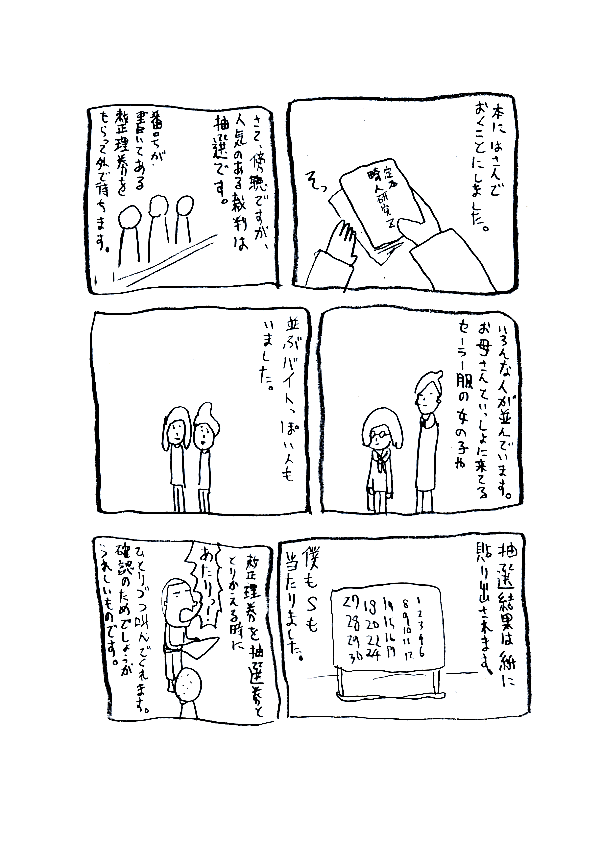 本にはさんで
おくことにしました。
そっ
さて、傍聴ですが、
人気のある裁判は
抽選です。
番号が
書いてある
整理券を
もらって外で待ちます。
いろんな人が並んでいます。
お母さんといっしょに来てる
セーラー服の女の子や
並ぶバイトっぽい人も
いました。
抽選結果は紙に
貼り出されます。
27 18 14 8 1
28 20 15 9 2
29 22 16 10 3
30 24 19 11 4
12 6
僕もSも
当たりました。
整理券を抽選券と
とりかえる時に
あたりっ!
ひとりづつ叫んでくれます。
確認のためでしょうが
うれしいものです。